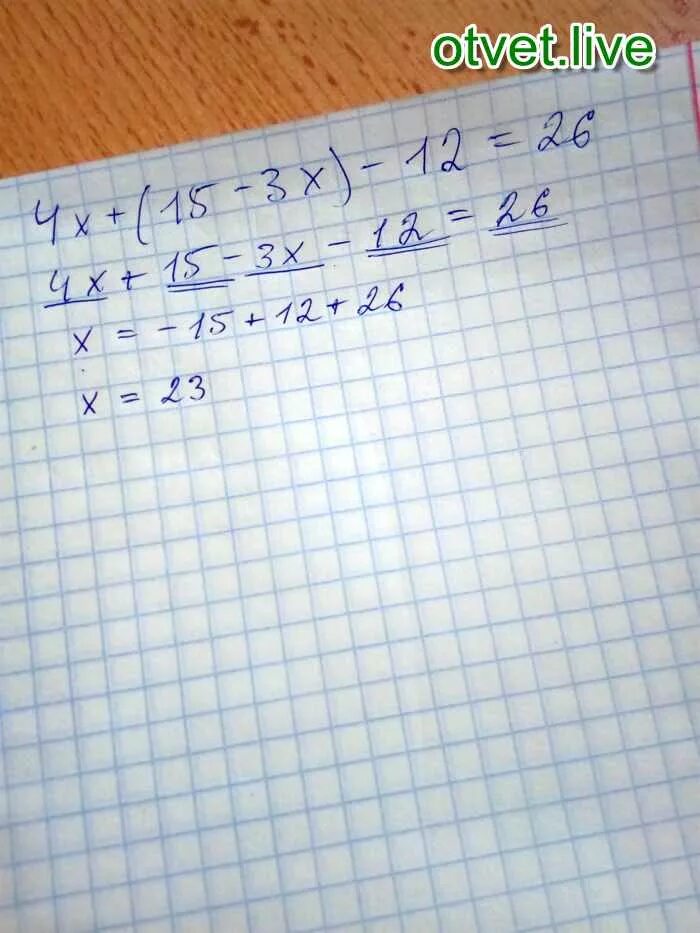 otvet.live
4x+(15-3x)-12=26
4x+15-3x-12=26
x=-15+12+26
x=23